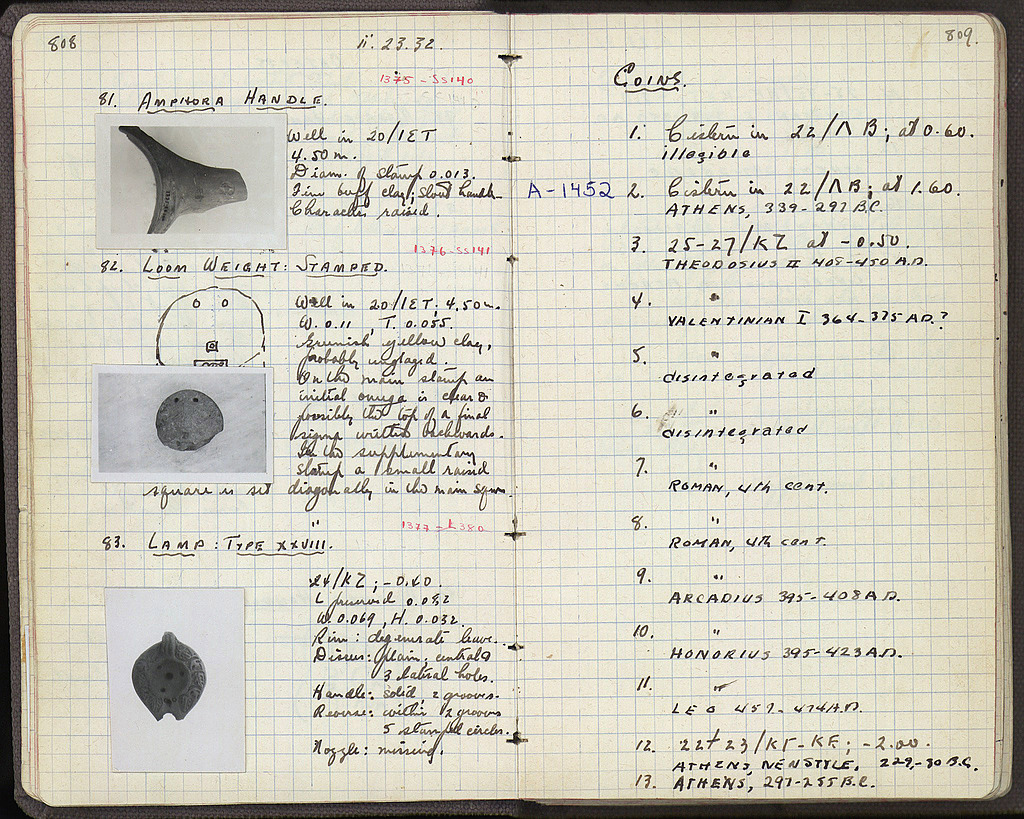 808
ii. 23.32.
1375 - SS140
81. AMPHORA HANDLE.
Well in 20/ΙΣΤ
4.50 m.
Diam. of stamp 0.013.
Fine buff clay; stout handle.
Character raised.
1376 - SS141
82. LOOM WEIGHT: STAMPED.
Well in 20/ΙΣΤ; 4.50 m.
W. 0.11, T. 0.055.
Greenish yellow clay,
probably unglazed.
On the main stamp an
initial omega is clear &
possibly the top of a final
sigma written backwards.
In the supplementary
stamp a small raised
square is set diagonally in the main square.
"
1377 - L380
83. LAMP: TYPE XXVIII.
24/ΚΖ; -0.40.
L preserved 0.082
W. 0.069, H. 0.032.
Rim: degenerate leave.
Discus: plain, central &
3 lateral holes.
Handle: solid, 2 grooves.
Reverse: within 2 grooves
5 stamped circles.
Nozzle: missing.
809.
COINS.
1. Cistern in 22/ΛΒ; at 0.60.
illegible
A-1452
2. Cistern in 22/ΛΒ; at 1.60.
ATHENS, 339-297 B.C.
3. 25-27/ΚΖ at -0.50.
THEODOSIUS II 408-450 A.D.
4. "
VALENTINIAN I 364-375 A.D.?
5. "
disintegrated
6. "
disintegrated
7. "
ROMAN, 4th cent.
8. "
ROMAN, 4th cent.
9. "
ARCADIUS 395-408 A.D.
10. "
HONORIUS 395-423 A.D.
11. "
LEO 457-474 A.D.
12. 22+23/ΚΓ-ΚΕ; -2.00.
ATHENS, NEWSTYLE, 229-30 B.C.
13. ATHENS, 297-255 B.C.